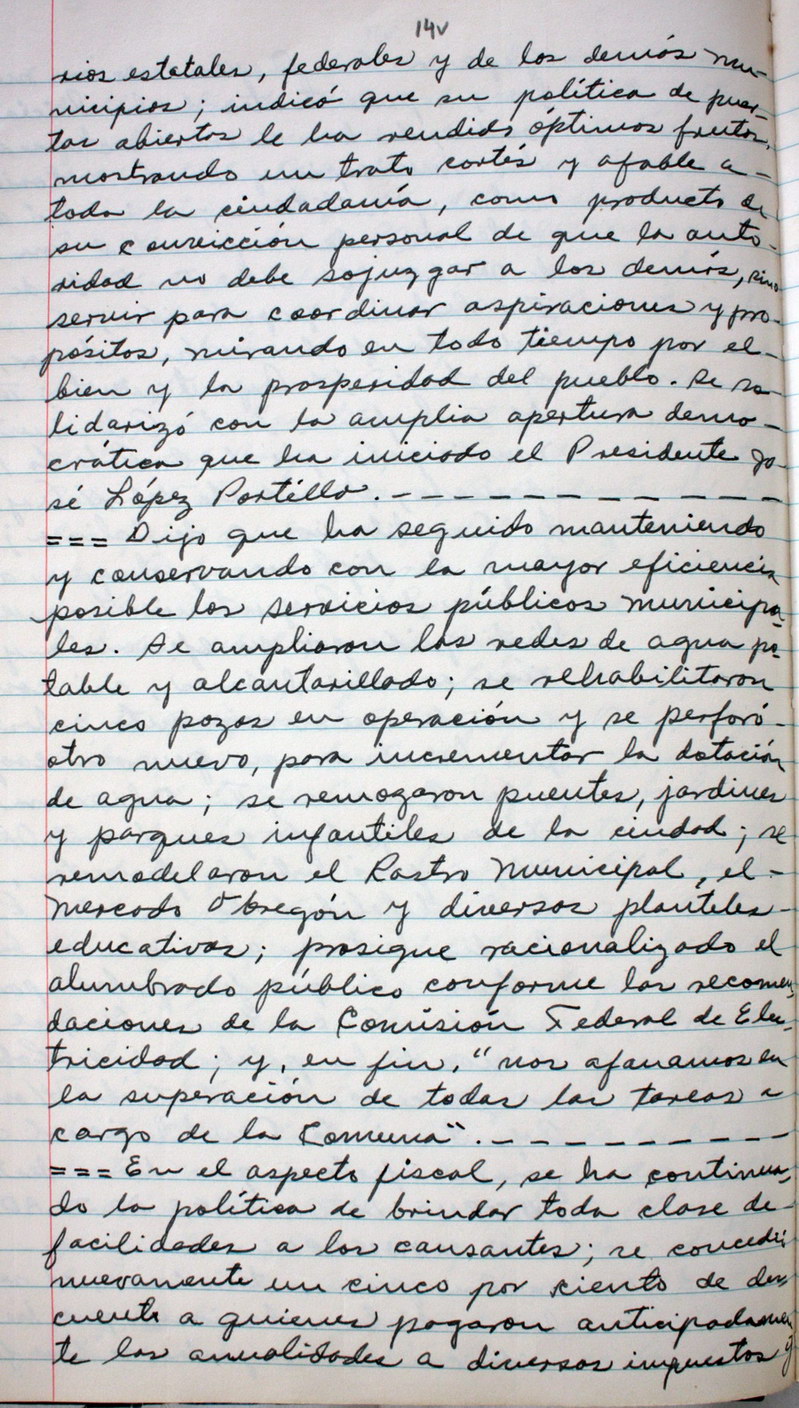 14v
rios estatales, federales y de los demás mu-
nicipios; indicó que su política de puer-
tas abiertas le ha rendido óptimos frutos,
mostrando un trato cortés y afable a -
toda la ciudadanía, como producto de
su convicción personal de que la auto-
ridad no debe sojuzgar a los demás, sino
servir para coordinar aspiraciones y pro-
pósitos, mirando en todo tiempo por el -
bien y la prosperidad del pueblo. Se so-
lidarizó con la amplia apertura demo-
crática que ha iniciado el Presidente Jo-
sé López Portillo. - - - - - - - - - -
=== Dijo que ha seguido manteniendo
y conservando con la mayor eficiencia
posible los servicios públicos municipa-
les. Se ampliaron las redes de agua po-
table y alcantarillado; se rehabilitaron
cinco pozos en operación y se perforó -
otro nuevo, para incrementar la dotación
de agua; se remozaron puentes, jardines
y parques infantiles de la ciudad; se
remodelaron el Rastro Municipal, el -
Mercado Obregón y diversos planteles -
educativos; prosigue racionalizado el
alumbrado público conforme las recomen-
daciones de la Comisión Federal de Elec-
tricidad; y, en fin, "nos afanamos en
la superación de todas las tareas a
cargo de la Comuna". - - - - - - - - -
=== En el aspecto fiscal, se ha continua-
do la política de brindar toda clase de -
facilidades a los causantes; se concedió
nuevamente un cinco por ciento de des-
cuento a quienes pagaron anticipadamen-
te las anualidades a diversos impuestos y